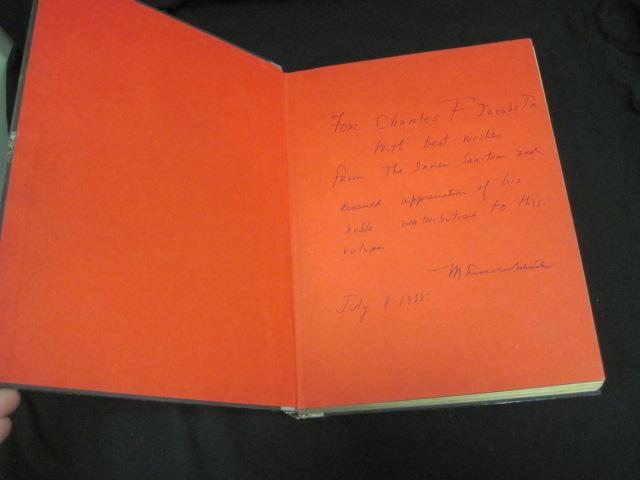 For Charles F Jacobs Jr
With best wishes
from The Inner Sanctum and
renewed appreciation of his
noble contributions to this
volume
M Lincoln Schuster
July 8 1955